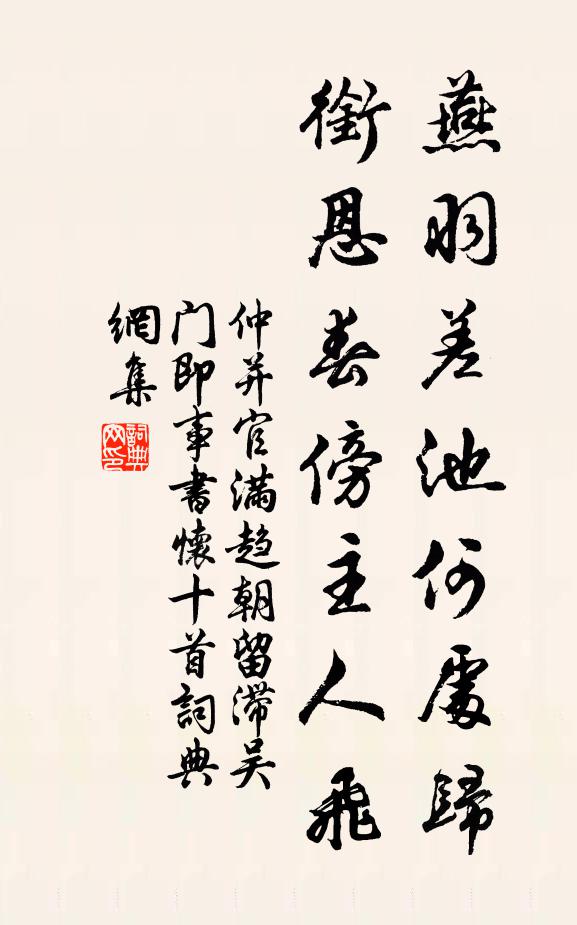 燕羽差池何處歸
銜恩春傍主人飛
仲并官滿趋朝留滯吴
门即事書懷十首詞典
網集
詞典
网印